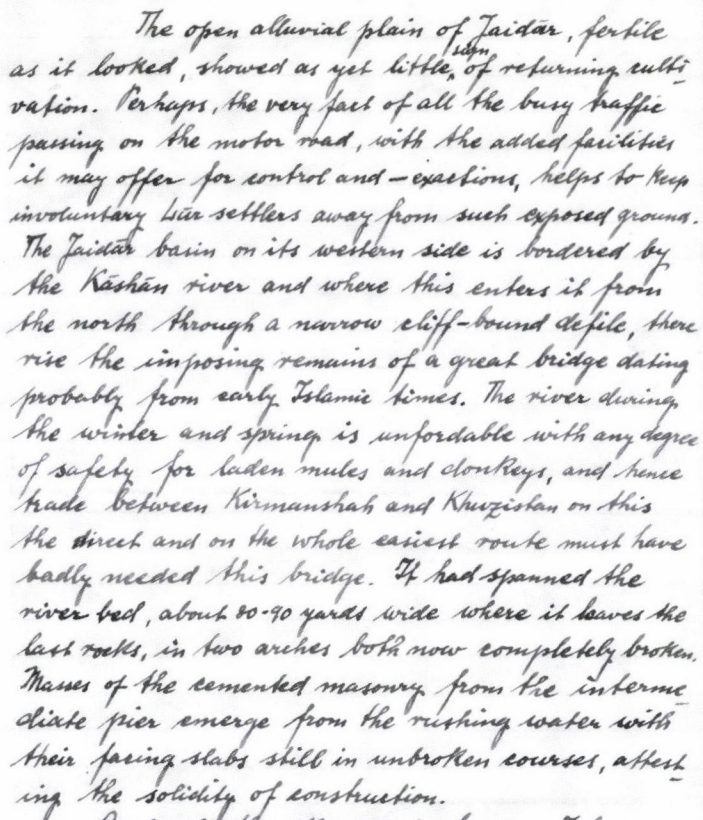 The open alluvial plain of Jaidār, fertile
as it looked, showed as yet little sign of returning culti-
vation. Perhaps, the very fact of all the busy traffic
passing on the motor road, with the added facilities
it may offer for control and – exactions, helps to keep
involuntary Lūr settlers away from such exposed ground.
The Jaidār basin on its western side is bordered by
the Kāshān river and where this enters it from
the north through a narrow cliff-bound defile, there
rise the imposing remains of a great bridge dating
probably from early Islamic times. The river during
the winter and spring is unfordable with any degree
of safety for laden mules and donkeys, and hence
trade between Kirmanshah and Khuzistan on this
the direct and on the whole easiest route must have
badly needed this bridge. It had spanned the
river bed, about 80-90 yards wide where it leaves the
last rocks, in two arches both now completely broken.
Masses of the cemented masonry from the interme-
diate pier emerge from the rushing water with
their facing slabs still in unbroken courses, attest-
ing the solidity of construction.